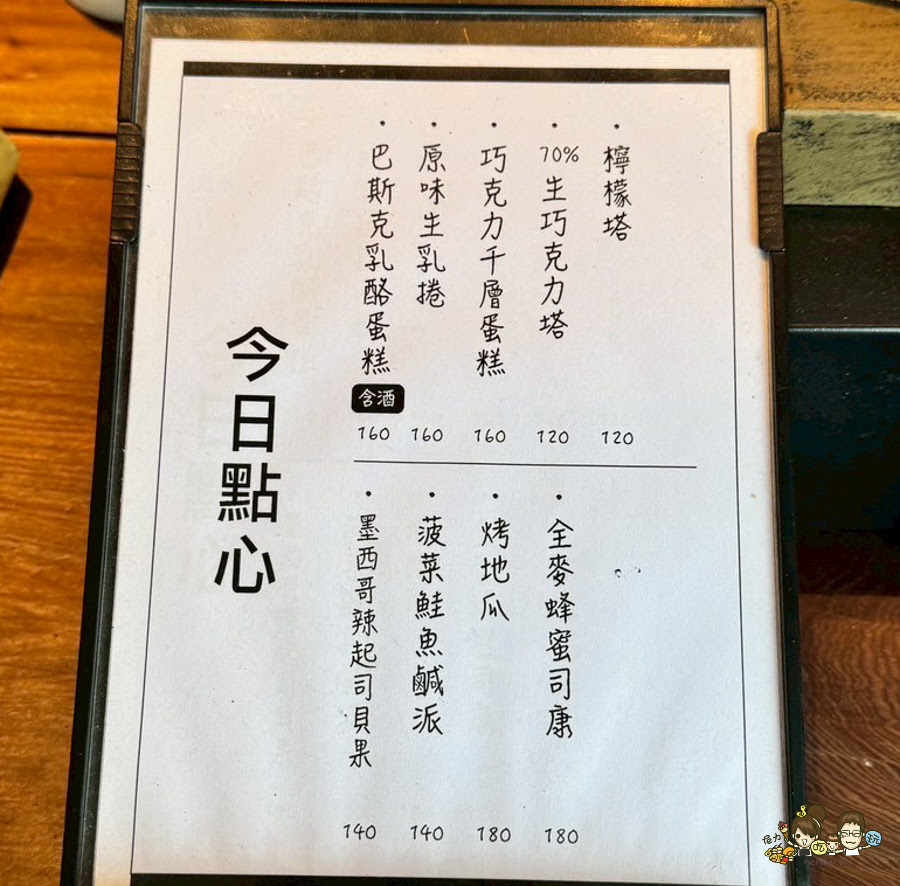 檸檬塔
120
70%生巧克力塔
120
巧克力千層蛋糕
160
原味生乳捲
160
巴斯克乳酪蛋糕
含酒
160
全麥蜂蜜司康
180
烤地瓜
180
菠菜鮭魚鹹派
140
墨西哥辣起司貝果
140
今日點心